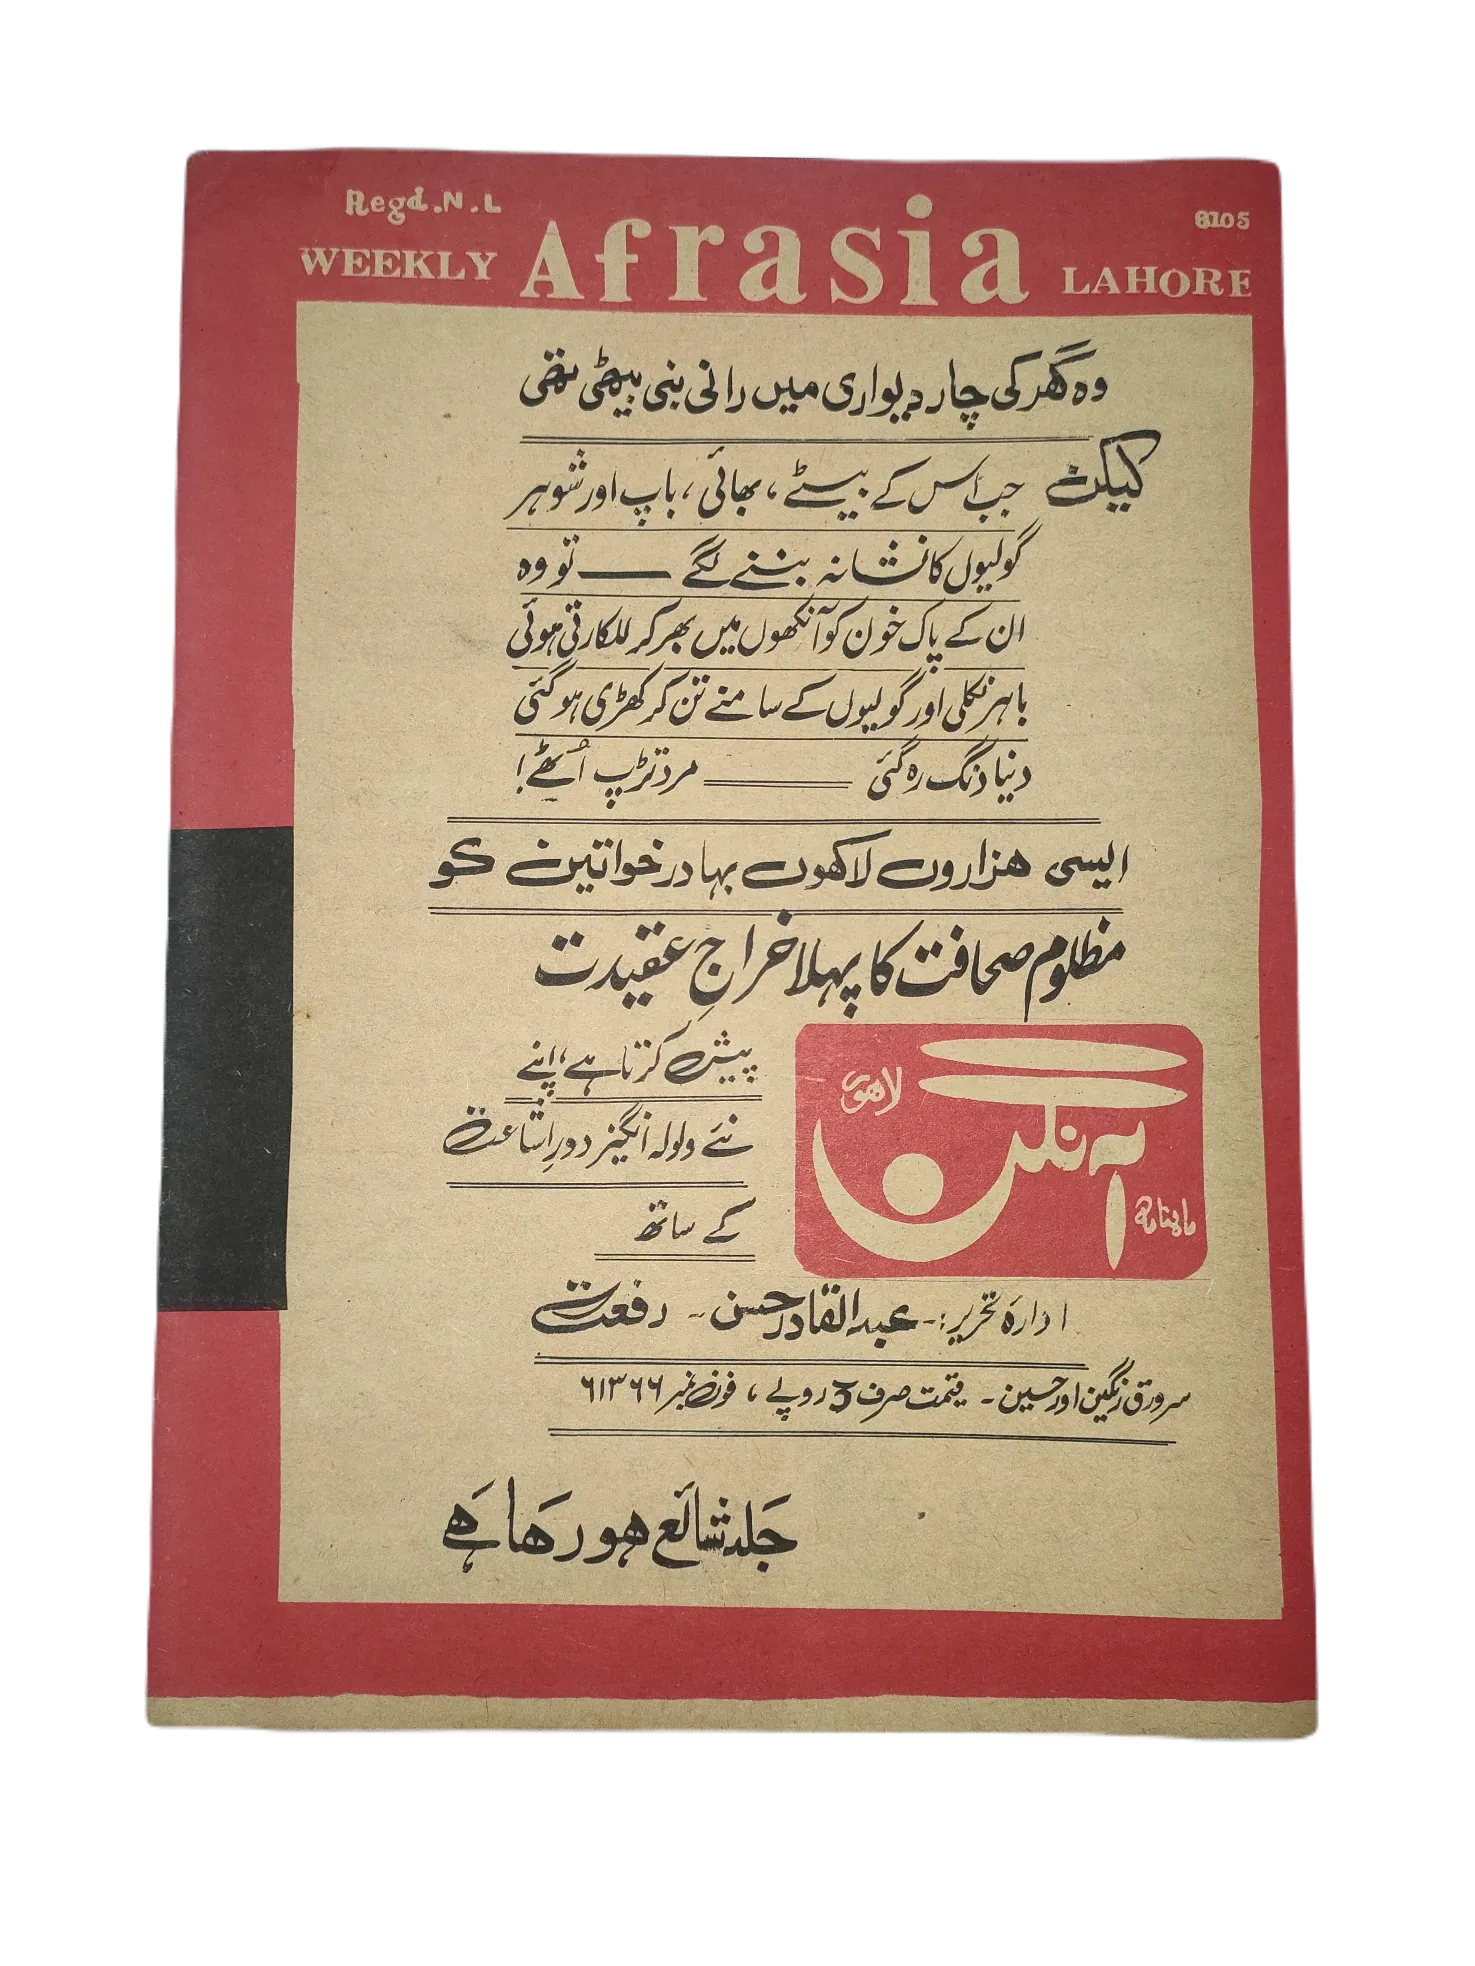 Regd.N.L 6105
WEEKLY Afrasia LAHORE
وہ گھر کی چار دیواری میں رانی بنی بیٹھی تھی
لیکن جب اس کے بیٹے ، بھائی ، باپ اور شوہر
گولیوں کا نشانہ بننے لگے —— تو وہ
ان کے پاک خون کو آنکھوں میں بھر کر للکارتی ہوئی
باہر نکلی اور گولیوں کے سامنے تن کر کھڑی ہو گئی
دنیا دنگ رہ گئی —— مرد تڑپ اُٹھے !
ایسی ہزاروں لاکھوں بہادر خواتین کو
مظلوم صحافت کا پہلا خراجِ عقیدت
ماہنامہ آنگن لاہور
پیش کرتا ہے، اپنے
نئے ولولہ انگیز دورِ اشاعت
کے ساتھ
ادارہ تحریر :- عبدالقادر حسن - رفعت
سرورق رنگین اور حسین - قیمت صرف 3 روپے ، فون نمبر ۶۱۳۶۶
جلد شائع ہو رہا ہے